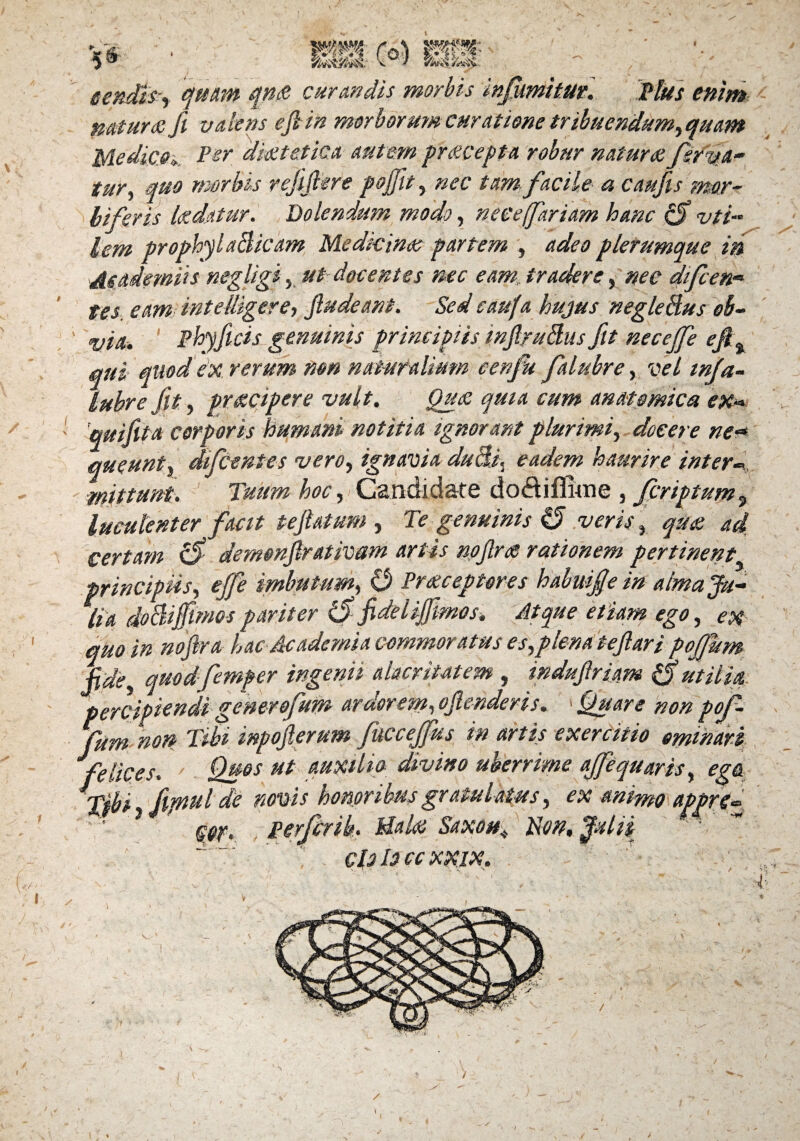 56 (o)
cendis, quam quæ curandis morbis inſumitur. Plus enim
naturæ ſi valens eſt in morborum curatione tribuendum, quam
Medico. Per diætetica autem præcepta robur naturæ ſerva-
tur, quo morbis reſiſtere poſſit, nec tam facile a cauſis mor-
biferis lædatur. Dolendum modo, neceſſariam hanc & vti-
lem prophylacticam Medicinæ partem , adeo plerumque in
Academiis negligi, ut docentes nec eam tradere, nec diſcen-
tes eam intelligere, ſtudeant. Sed cauſa hujus neglectus ob-
via. Phyſicis genuinis principiis inſtructus ſit neceſſe eſt,
qui quod ex rerum non naturalium cenſu ſalubre, vel inſa-
lubre ſit, præcipere vult. Quæ quia cum anatomica ex-
quiſita corporis humani notitia ignorant plurimi, docere ne-
queunt, diſcentes vero, ignavia ducti, eadem haurire inter-
mittunt. Tuum hoc, Candidate doctiſſime , ſcriptum,
luculenter facit teſtatum , Te genuinis & veris, quæ ad
certam & demonſtrativam artis noſtræ rationem pertinent,
principiis, eſſe imbutum, & Præceptores habuiſſe in alma Ju-
lia doctiſſimos pariter & fideliſſimos. Atque etiam ego, ex
quo in noſtra hac Academia commoratus es, plena teſtari poſſum
fide, quod ſemper ingenii alacritatem , induſtriam & utilia
percipiendi generoſum ardorem, oſtenderis. Quare non poſ-
ſum non Tibi inpoſterum ſucceſſus in artis exercitio ominari
felices. Quos ut auxilio divino uberrime aſſequaris, ego
Tibi, ſimul de novis honoribus gratulatus, ex animo appre-
cor. Perſcrib. Halæ Saxon. Non. Julii
cIↃ IↃ cc xxix.